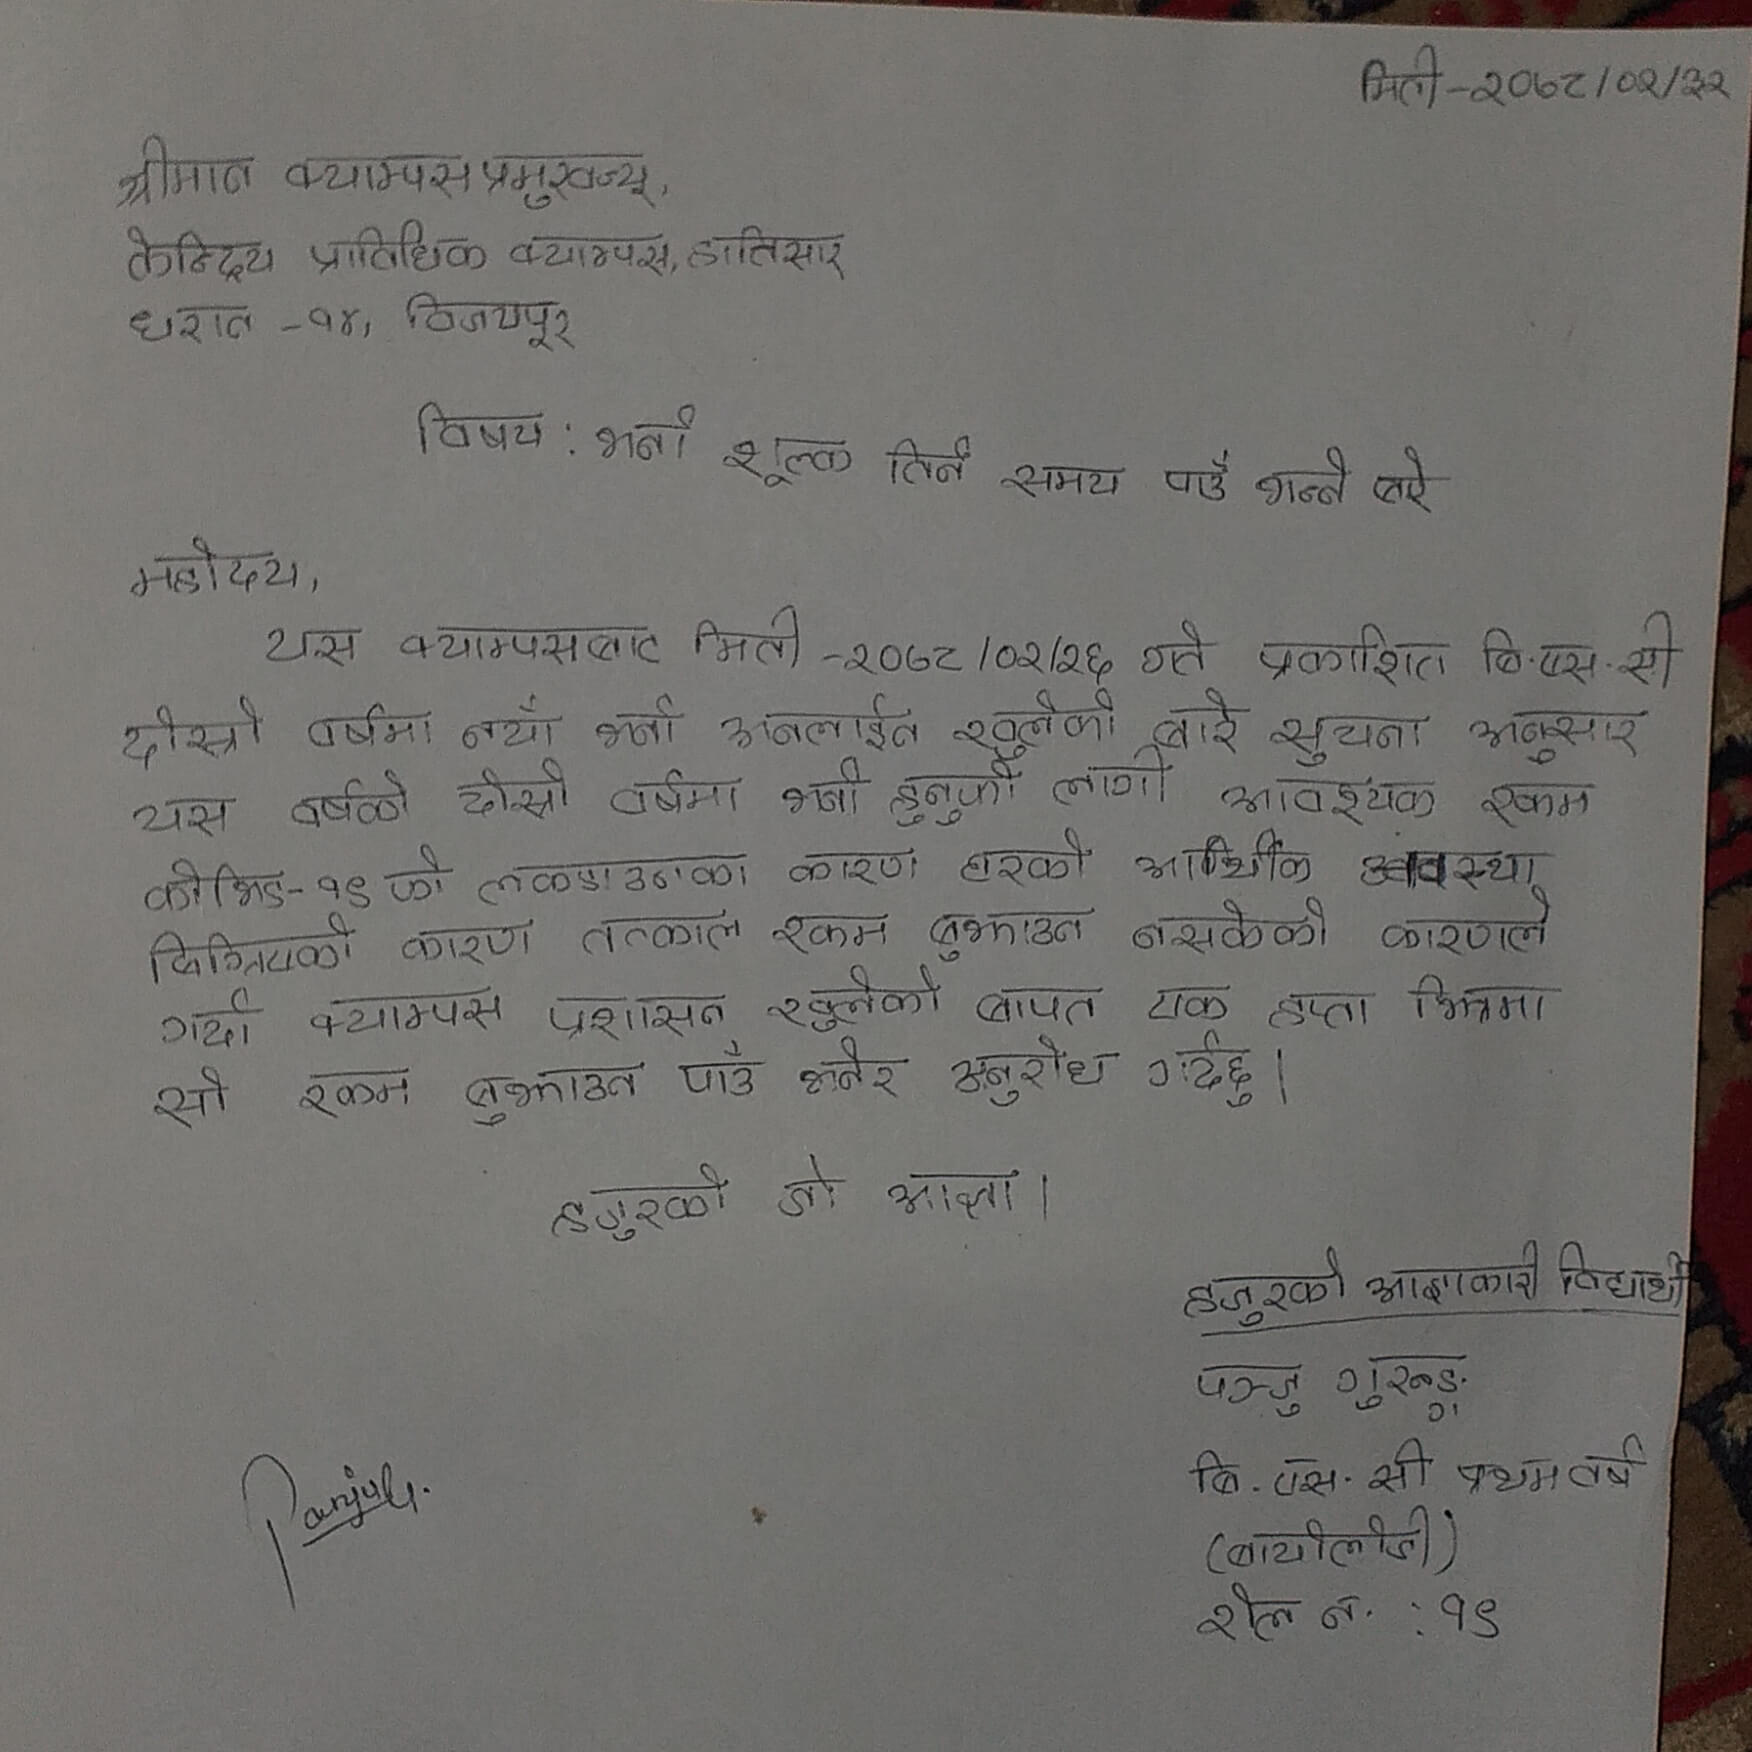 मिती-२०७८/०२/३२
श्रीमान क्याम्पस प्रमुखज्यू,
केन्द्रिय प्राविधिक क्याम्पस, हातिसार
धरान -१४, विजयपूर
विषय : भर्ना शूल्क तिर्न समय पाउँ भन्ने बारे
महोदय,
यस क्याम्पसबाट मिती -२०७८/०२/२६ गते प्रकाशित बि.एस.सी
दोस्रो वर्षमा नयाँ भर्ना अनलाईन खुलेको बारे सुचना अनुसार
यस वर्षको दोस्रो वर्षमा भर्ना हुनुको लागी आवश्यक रकम
कोभिड-१९ को लकडाउनका कारण घरको आर्थिक अवस्था
बिग्रियको कारण तत्काल रकम बुझाउन नसकेको कारणले
गर्दा क्याम्पस प्रशासन खुलेको बापत एक हप्ता भित्रमा
सो रकम बुझाउन पाउँ भनेर अनुरोध गर्दछु।
हजुरको जो आज्ञा।
हजुरको आज्ञाकारी विद्यार्थी
पञ्जु गुरुङ्ग
बि.एस.सी प्रथम वर्ष
(बायोलोजी)
रोल न. : १९
PanjuG.